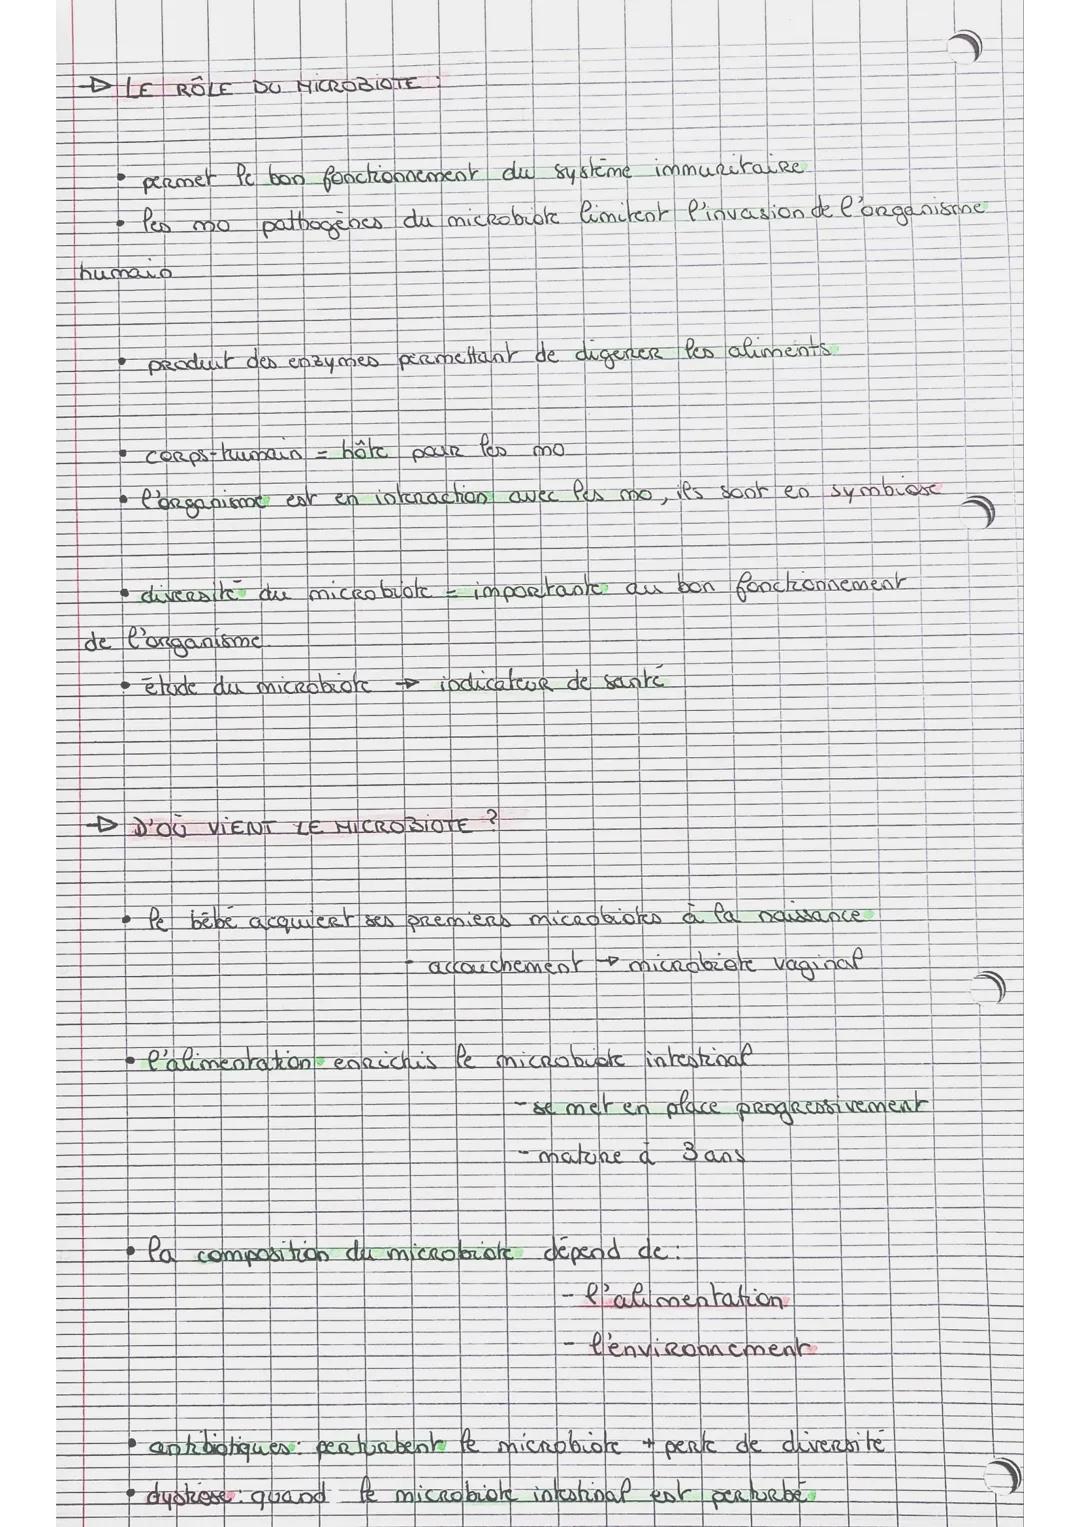 → LE RÔLE DU MICROBIOTE :
• permet le bon fonctionnement du système immunitaire
• les mo pathogènes du microbiote limitent l'invasion de l'organisme
humain
• produit des enzymes permettant de digerer les aliments
• corps-humain = hôte pour les mo
• l'organisme est en interaction avec les mo, ils sont en symbiose
• diversité du microbiote = importante au bon fonctionnement
de l'organisme
• étude du microbiote → indicateur de santé
→ D'OÙ VIENT LE MICROBIOTE ?
• le bébé acquiert ses premiers microbiotes à la naissance
- accouchement → microbiote vaginal
• l'alimentation enrichis le microbiote intestinal
- se met en place progressivement
- mature à 3 ans
• la composition du microbiote dépend de :
- l'alimentation
- l'environnement
• antibiotiques : perturbent le microbiote + perte de diversité
• dysbiose : quand le microbiote intestinal est perturbé